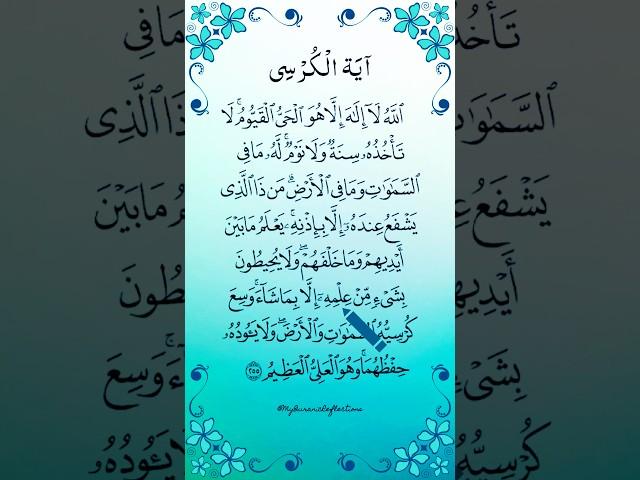 آيَة الْكُرْسِى
ٱللَّهُ لَآ إِلَٰهَ إِلَّا هُوَ ٱلْحَىُّ ٱلْقَيُّومُ ۚ لَا
تَأْخُذُهُۥ سِنَةٌ وَلَا نَوْمٌ ۚ لَّهُۥ مَا فِى
ٱلسَّمَٰوَٰتِ وَمَا فِى ٱلْأَرْضِ ۗ مَن ذَا ٱلَّذِى
يَشْفَعُ عِندَهُۥٓ إِلَّا بِإِذْنِهِۦ ۚ يَعْلَمُ مَا بَيْنَ
أَيْدِيهِمْ وَمَا خَلْفَهُمْ ۖ وَلَا يُحِيطُونَ
بِشَىْءٍ مِّنْ عِلْمِهِۦٓ إِلَّا بِمَا شَآءَ ۚ وَسِعَ
كُرْسِيُّهُ ٱلسَّمَٰوَٰتِ وَٱلْأَرْضَ ۖ وَلَا يَـُٔودُهُۥ
حِفْظُهُمَا ۚ وَهُوَ ٱلْعَلِىُّ ٱلْعَظِيمُ ﴿٢٥٥﴾
@MyQuranicReflections